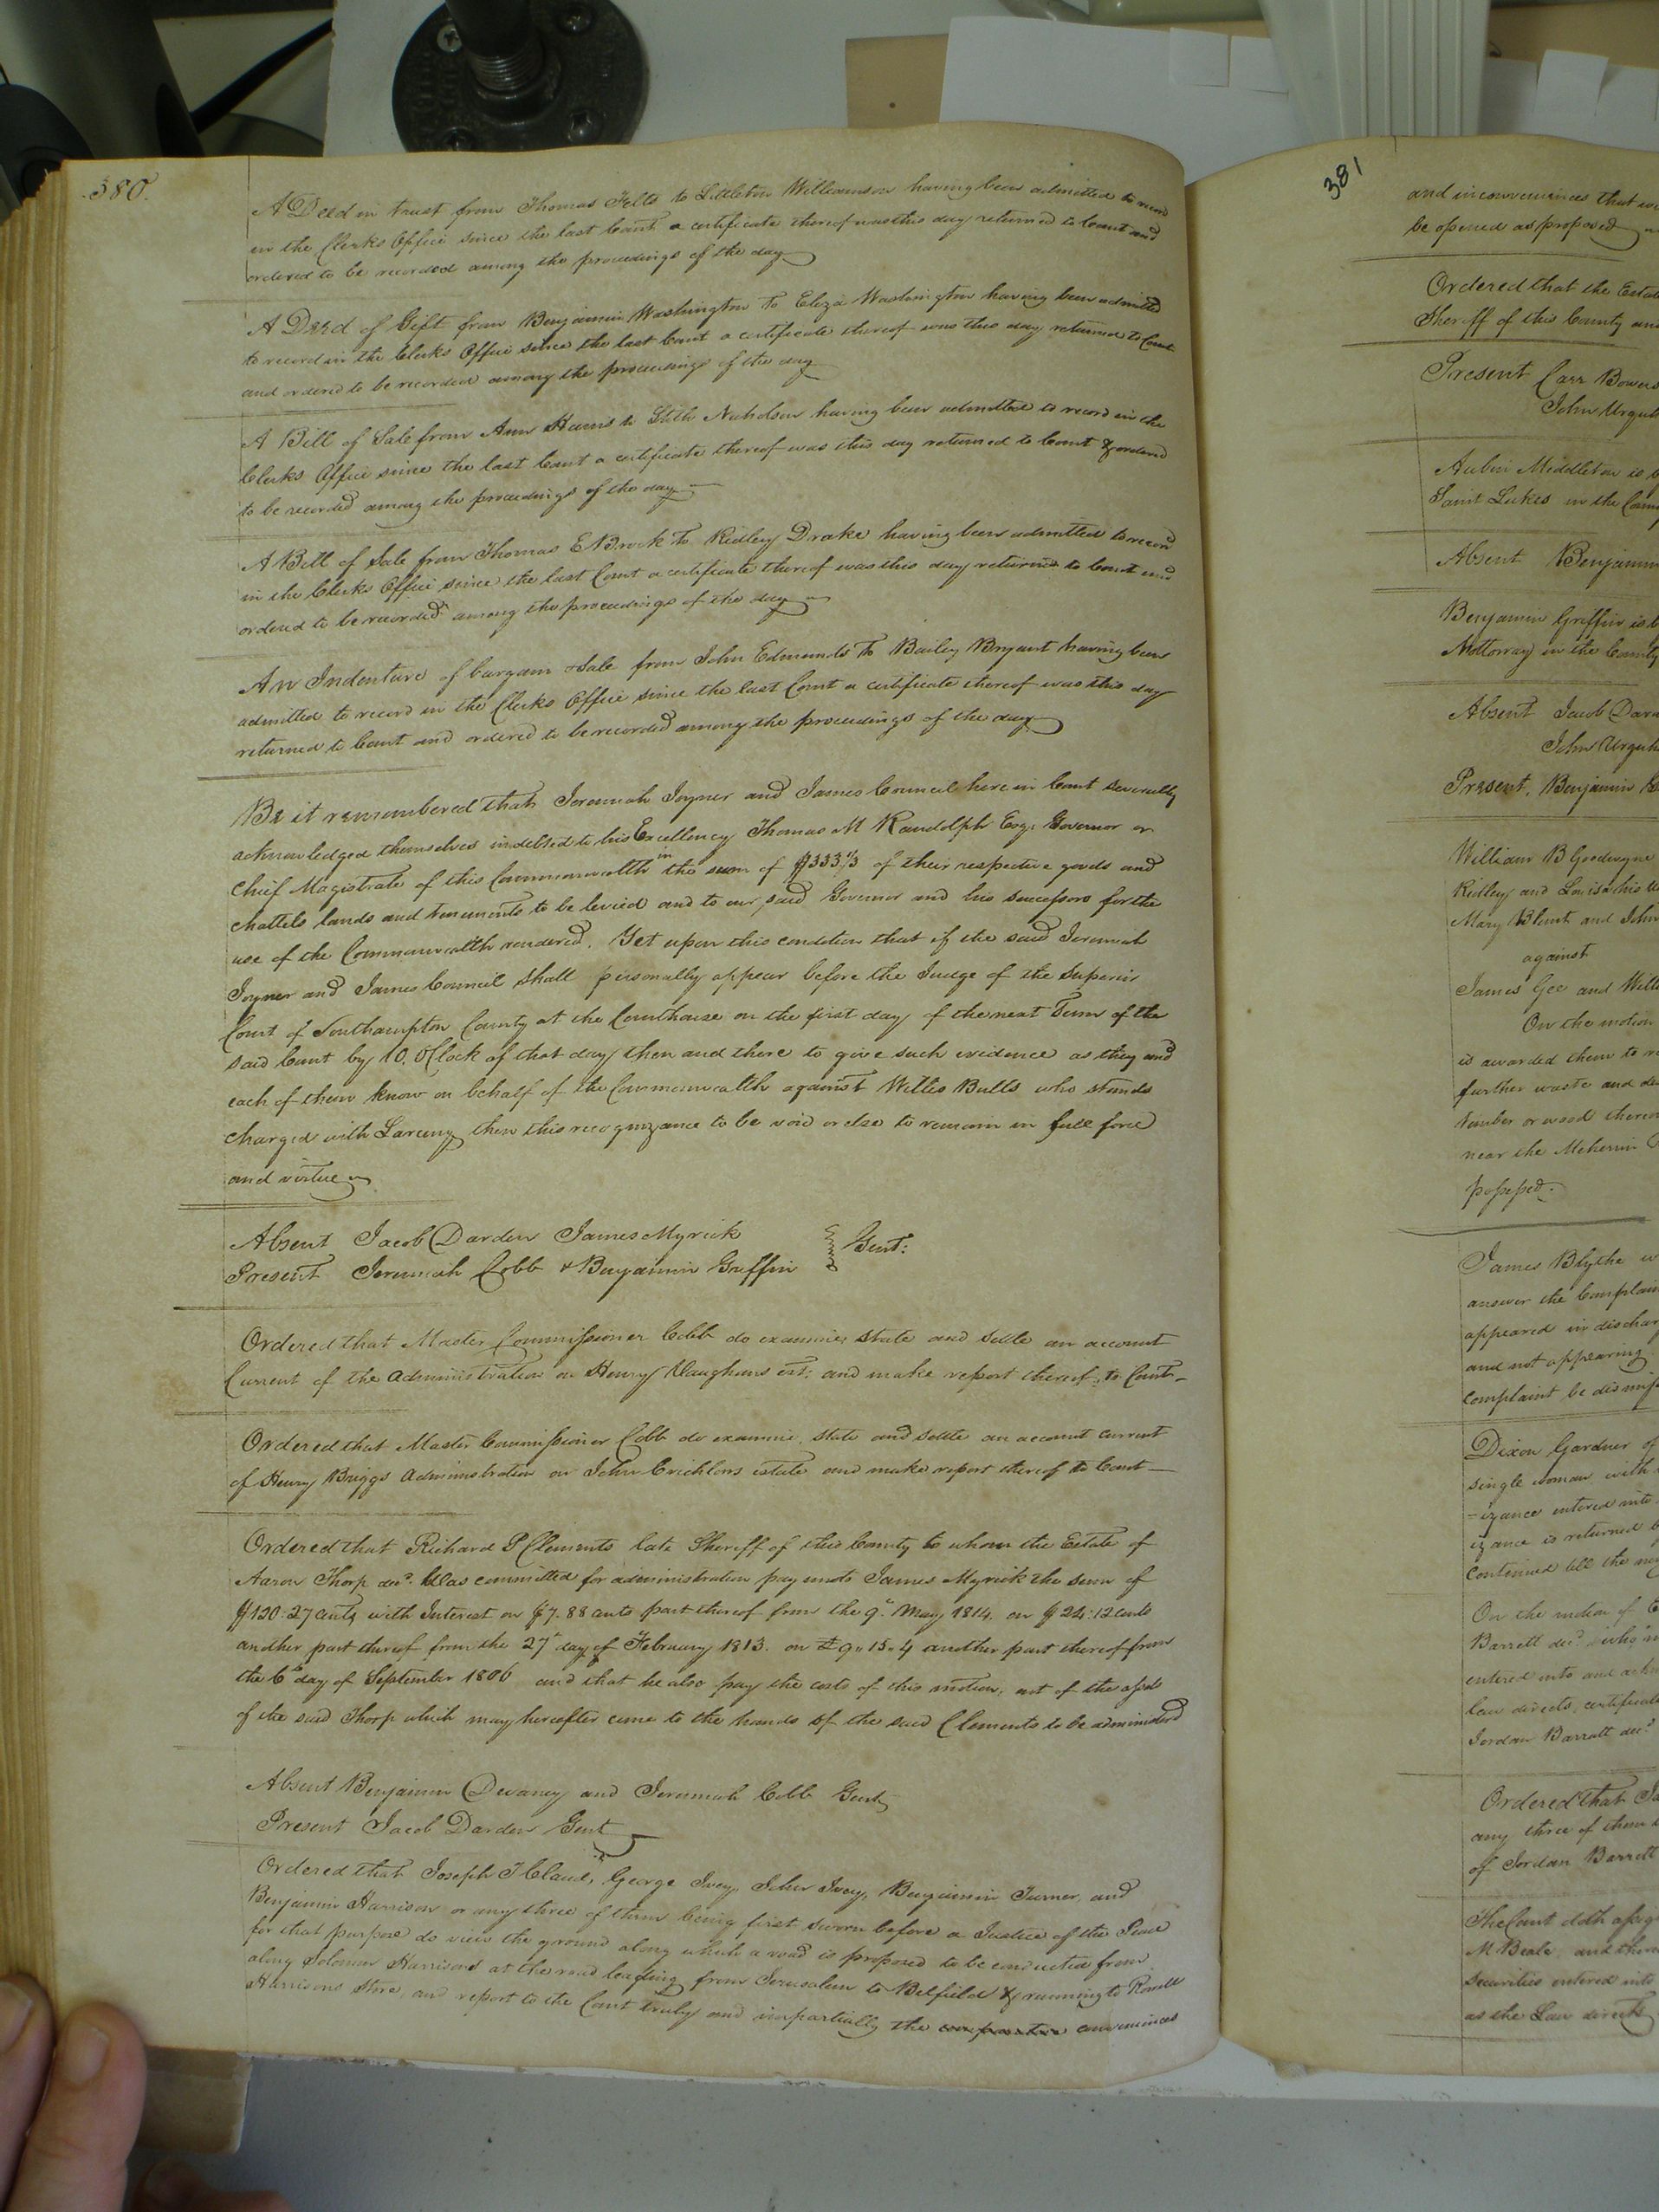 380.
A Deed in trust from Thomas Felts to Littleton Williamson having been admitted to record
in the Clerks Office since the last Court a certificate thereof was this day returned to Court and
ordered to be recorded among the proceedings of the day
A Deed of Gift from Benjamin Washington To Eliza Washington having been admitted
to record in the Clerks Office since the last Court a certificate thereof was this day returned to Court
and ordered to be recorded among the proceedings of the day
A Bill of Sale from Ann Harris to Nicholson having been admitted to record in the
Clerks Office since the last Court a certificate thereof was this day returned to Court & ordered
to be recorded among the proceedings of the day
A Bill of Sale from Thomas E Brock To Ridley Drake having been admitted to record
in the Clerks Office since the last Court a certificate thereof was this day returned to Court and
ordered to be recorded among the proceedings of the day
An Indenture of bargain & Sale from John Edmunds To Bailey Bryant having been
admitted to record in the Clerks Office since the last Court a certificate thereof was this day
returned to Court and ordered to be recorded among the proceedings of the day
Be it remembered that Jeremiah Joyner and James Council here in Court severally
acknowledged themselves indebted to his Excellency Thomas M Randolph Esq: Governor or
Chief Magistrate of this Commonwealth in the sum of $333.1/3 of their respective goods and
chattels lands and tenements to be levied and to our said Governor and his successors for the
use of the Commonwealth rendered. Yet upon this condition that if the said Jeremiah
Joyner and James Council shall personally appear before the Judge of the Superior
Court of Southampton County at the Courthouse on the first day of the next Term of the
said Court by 10. OClock of that day then and there to give such evidence as they and
each of them know on behalf of the Commonwealth against Willis Butts who stands
charged with Larceny then this recognizance to be void or else to remain in full force
and virtue
Absent Jacob Darden James Myrick
Present Jeremiah Cobb & Benjamin Griffin Gent:
Ordered that Master Commissioner Cobb do examine, state and settle an account
Current of the administration on Henry Vaughans est: and make report thereof to Court
Ordered that Master Commissioner Cobb do examine state and settle an account current
of Henry Briggs administration on John Crichlons estate and make report thereof to Court
Ordered that Richard P Clements late Sheriff of this County to whom the Estate of
Aaron Thorp dec. was committed for administration pay unto James Myrick the sum of
$120:27 cents with Interest on $7.88 cents part thereof from the 9th May 1814, on $24:12 cents
another part thereof from the 27th day of February 1813. on £9"15"4 another part thereof from
the 6th day of September 1806 and that he also pay the costs of this motion, out of the assets
of the said Thorp which may hereafter come to the hands of the said Clements to be administered
Absent Benjamin Devaney and Jeremiah Cobb Gent
Present Jacob Darden Gent
Ordered that Joseph T Claud, George Ivey, John Ivey, Benjamin Turner, and
Benjamin Harrison or any three of them being first sworn before a Justice of the Peace
for that purpose do view the ground along which a road is proposed to be conducted from
along Solomon Harrisons at the road leading from Jerusalem to Belfield & running to
Harrisons Store and report to the Court truly and impartially the conveniences
381
and inconveniences that
be opened as proposed
Ordered that the Estate
Sheriff of this County and
Present Carr Bowers
John Urquh
Aubin Middleton is
Saint Lukes in the
Absent Benjamin
Benjamin Griffin is
Nottoway in the County
Absent Jacob Dard
John Urquh
Present, Benjamin
William B Goodwyne
Ridley and Louisa his
Mary Blunt and John
against
James Gee and
On the motion
is awarded them to
further waste and
timber or wood thereon
near the Meherrin
possessed.
James Blythe
answer the Complain
appeared in discharg
and not appearing
complaint be dismiss
Dixon Gardner of
single woman with
=izance entered into
izance is returned
continued till the
On the motion of
Barrett dec. who
entered into and
law directs, certificate
Jordan Barrett dec.
Ordered that
any three of them
of Jordan Barrett
The Court doth assign
M Beale, and
Securities entered into
as the Law directs